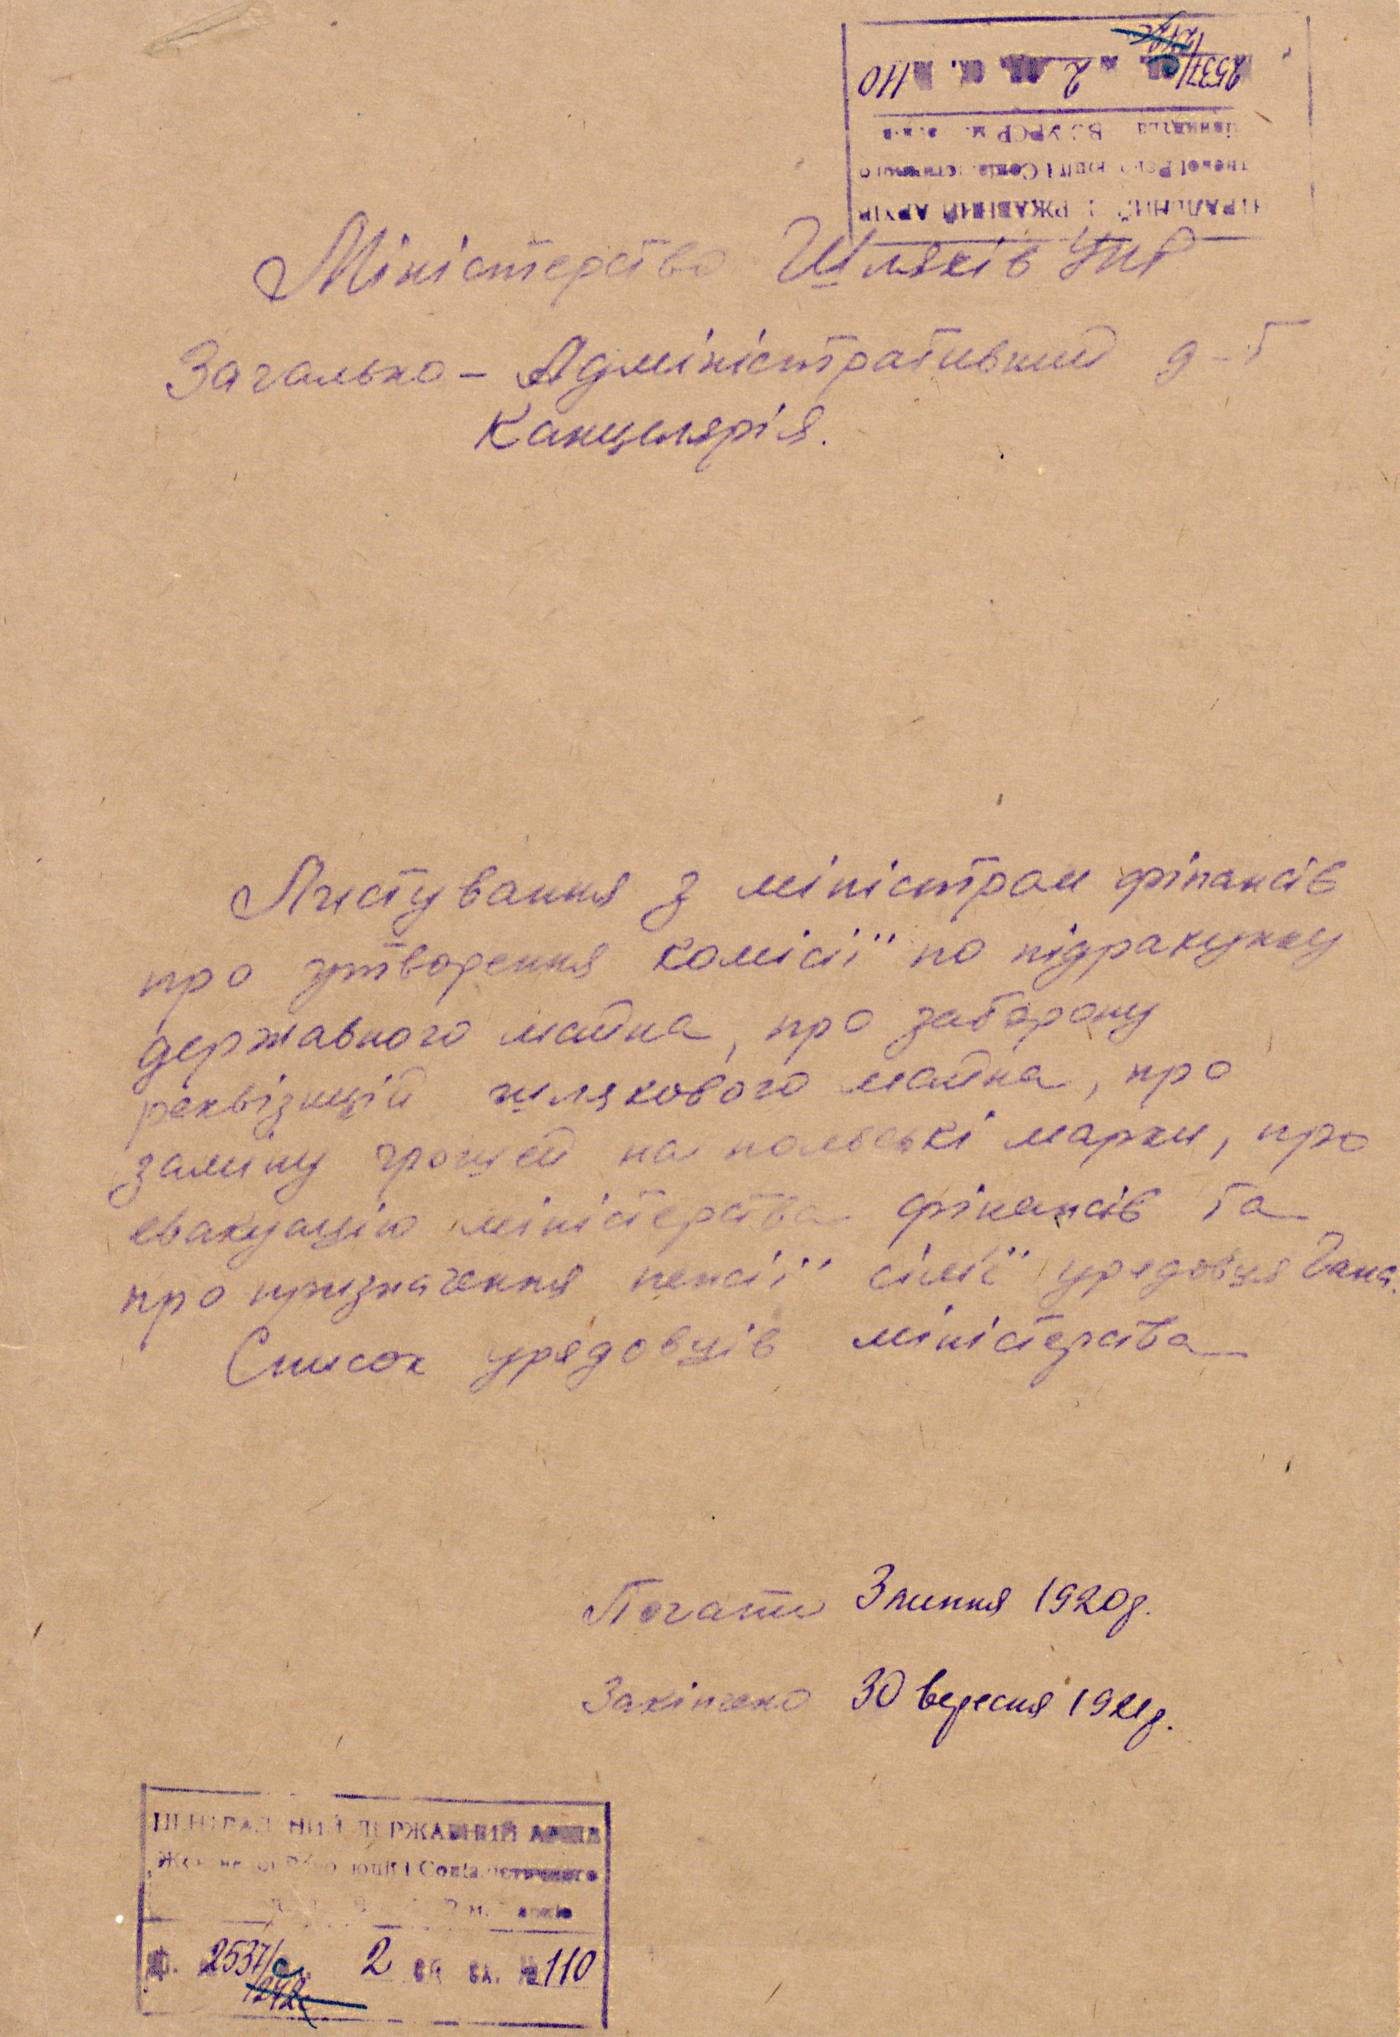 2537/с 2 оп. од. зб. №110
Міністерство Шляхів УНР
Загально-Адміністративний д-т
Канцелярія.
Листування з міністром фінансів
про утворення комісії по підрахунку
державного майна, про заборону
реквізицій шляхового майна, про
заміну грошей на польські марки, про
евакуацію міністерства фінансів та
про призначення пенсії сімії урядовця
Список урядовців міністерства
Почато 3 липня 1920р.
Закінчено 30 вересня 1921р.
ЦЕНТРАЛЬНИЙ ДЕРЖАВНИЙ АРХІВ
Жовтневої Революції і Соціалістичного
м. Харків
Ф. 2537/с 2 оп. од. зб. №110